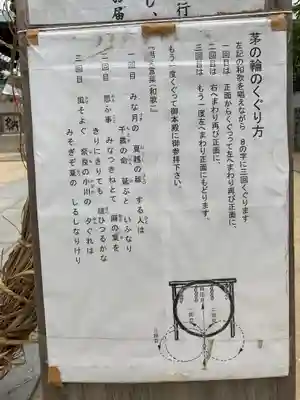 行
し、
お届
納
茅の輪のくぐり方
左記の和歌を唱えながら 8の字に三回くぐります
一回目は 正面からくぐって左へまわり再び正面に、
二回目は 右へまわり再び正面に、
三回目は もう一度左へまわり正面にもどります。
もう一度くぐって御本殿に御参拝下さい。
一回目 みな月の 夏越の祓 する人は
千歳の命 延ぶと いふなり
二回目 思ふ事 みなつきねとて 麻の葉を
きりにきりても 祓ひつるかな
三回目 風そよぐ 奈良の小川の 夕ぐれは
みそぎぞ夏の しるしなりけり